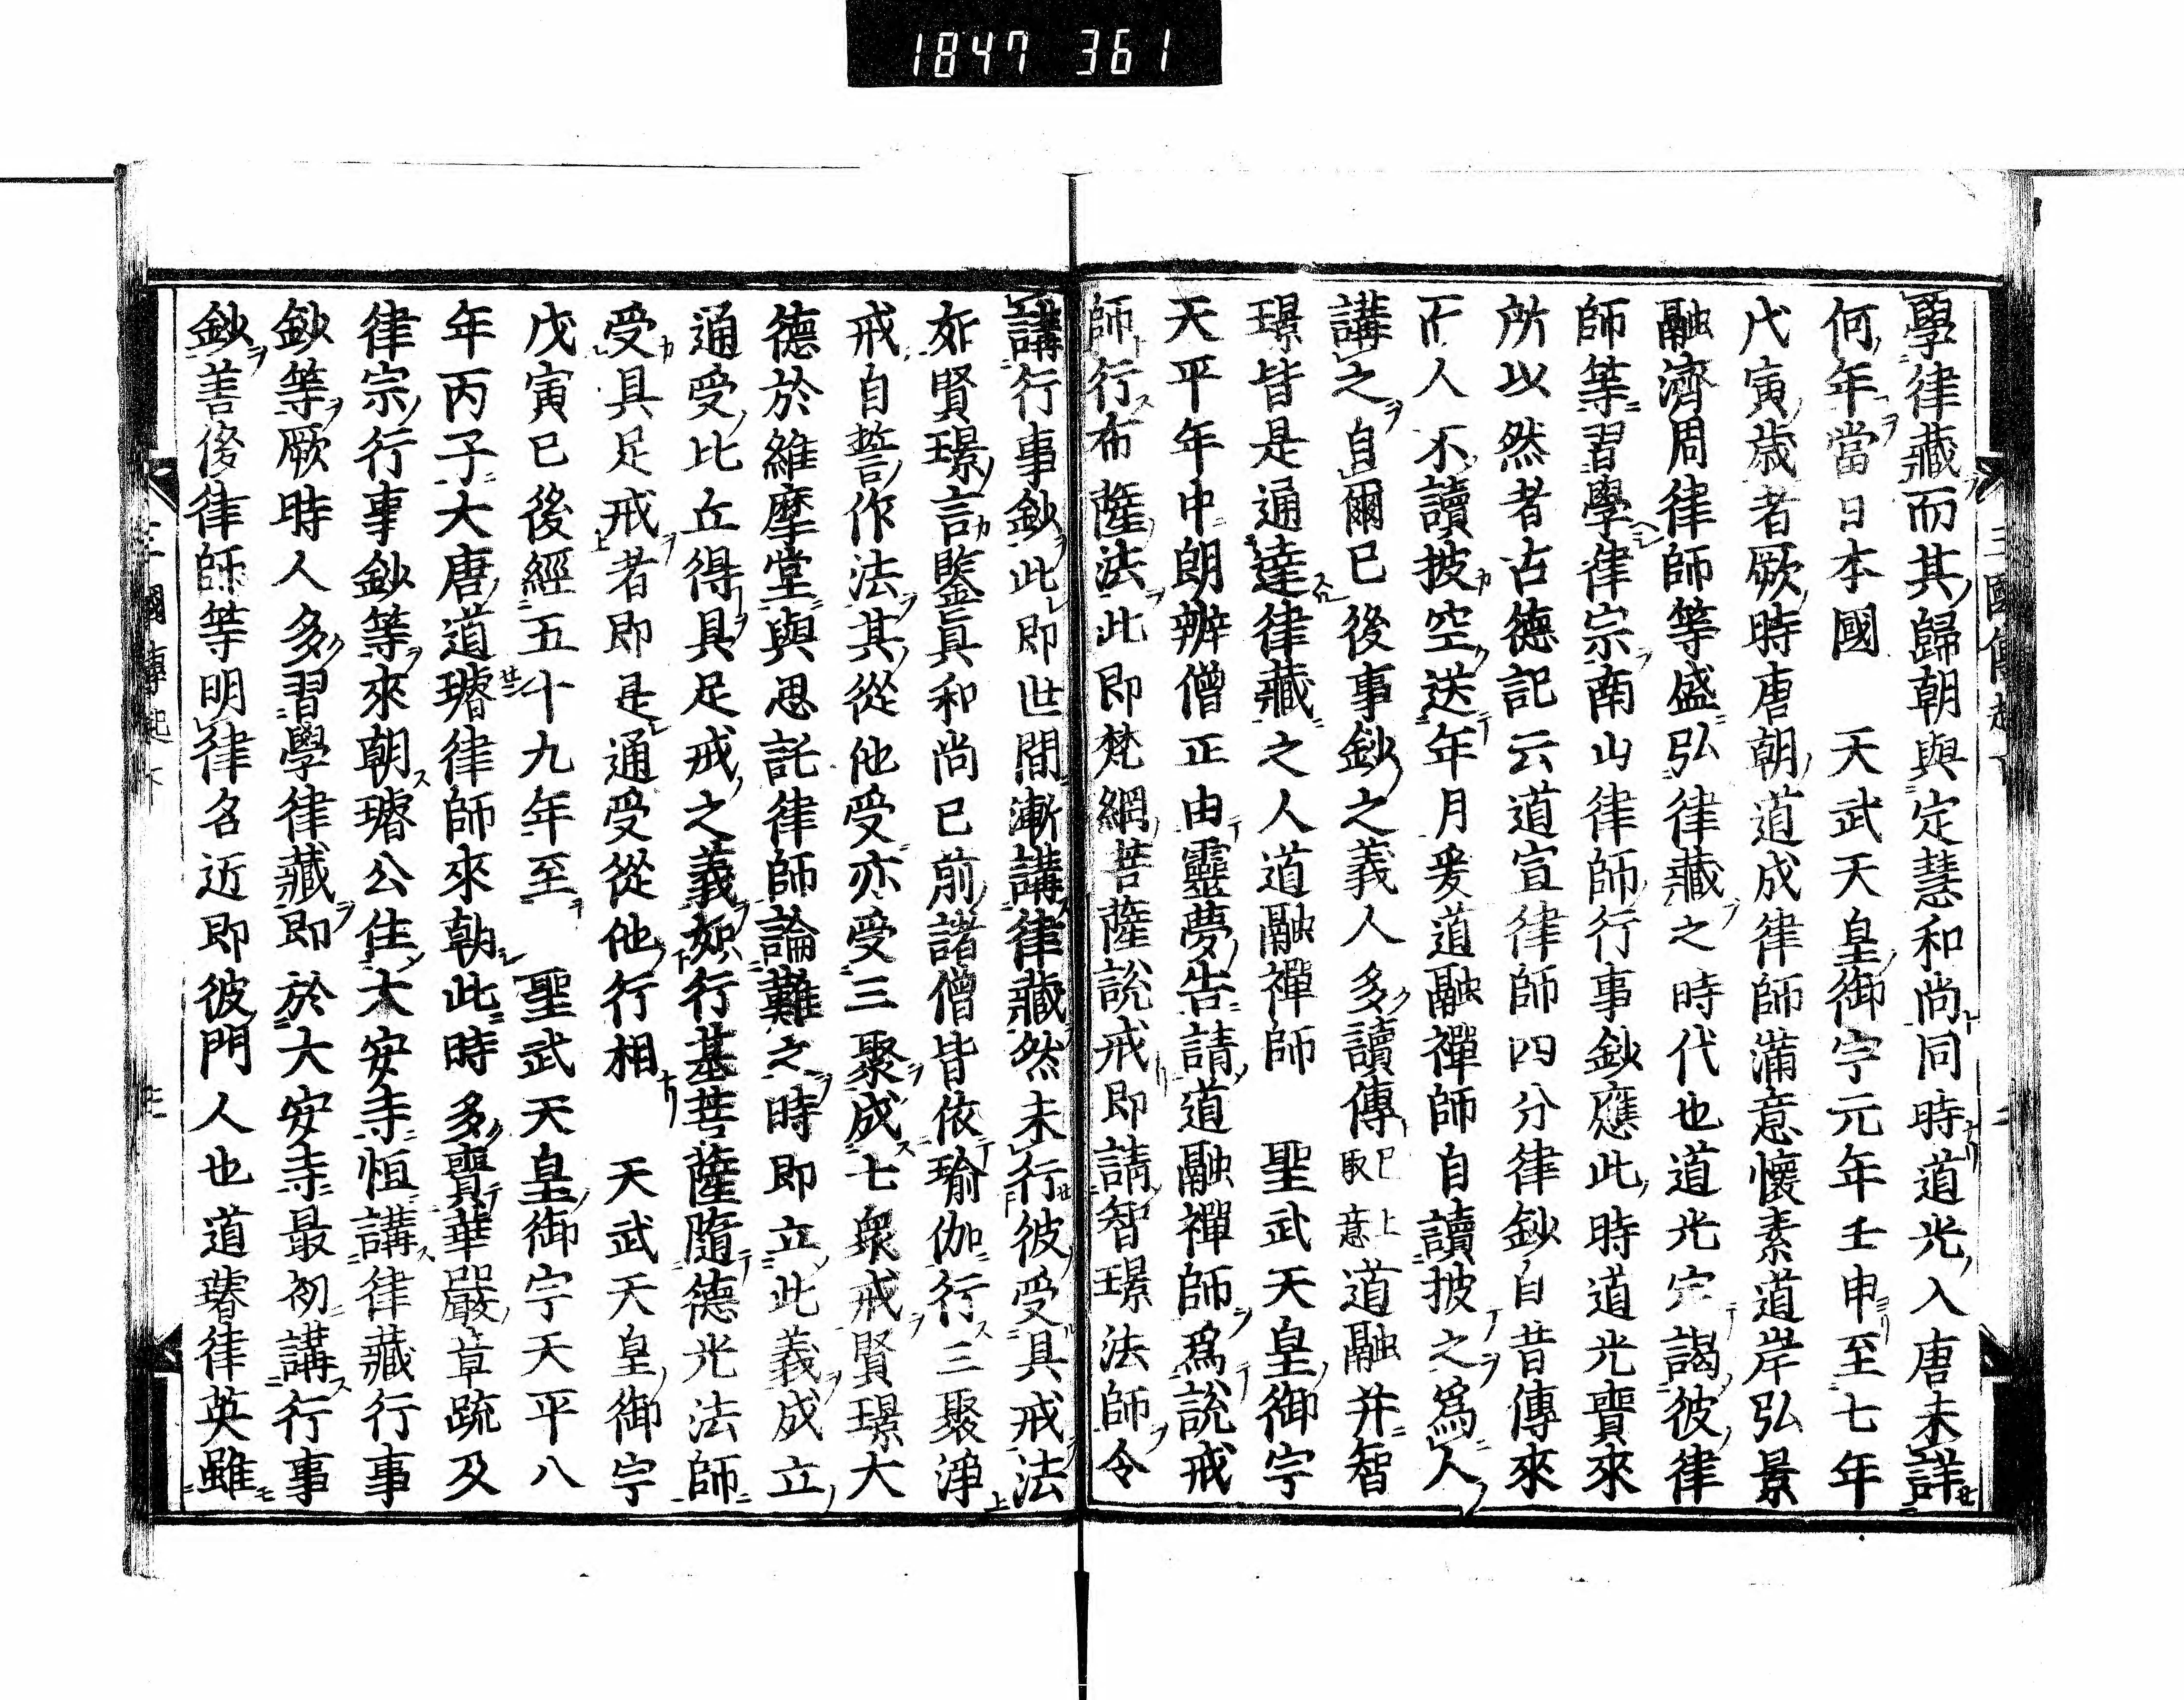 1847 361
學律藏而其歸朝與定慧和尚同時道光入唐未詳
何年當日本國　天武天皇御宇元年壬申至七年
戊寅歲者厥時唐朝道成律師滿意懷素道岸弘景
融濟周律師等盛弘律藏之時代也道光定謁彼律
師等習學律宗南山律師行事鈔應此時道光賷來
所以然者古德記云道宣律師四分律鈔自昔傳來
而人不讀披空送年月爰道融禪師自讀披之爲人
講之自爾已後事鈔之義人多讀傳已上取意道融并智
璟皆是通達律藏之人道融禪師　聖武天皇御宇
天平年中朗辨僧正由靈夢告請道融禪師爲說戒
師行布薩法此即梵網菩薩說戒即請智璟法師令
講行事鈔此即世間漸講律藏然未行彼受具戒法
如賢璟言鑒真和尚已前諸僧皆依瑜伽行三聚淨
戒自誓作法其從他受亦受三聚成七衆戒賢璟大
德於維摩堂與思託律師論難之時即立此義成立
通受比丘得具足戒之義如行基菩薩隨德光法師
受具足戒者即是通受從他行相　天武天皇御宇
戊寅已後經五十九年至　聖武天皇御宇天平八
年丙子大唐道璿律師來朝此時多賷華嚴章疏及
律宗行事鈔等來朝璿公住大安寺恒講律藏行事
鈔等厥時人多習學律藏即於大安寺最初講行事
鈔善俊律師等明律名近即彼門人也道璿律英雖
三國傳起下